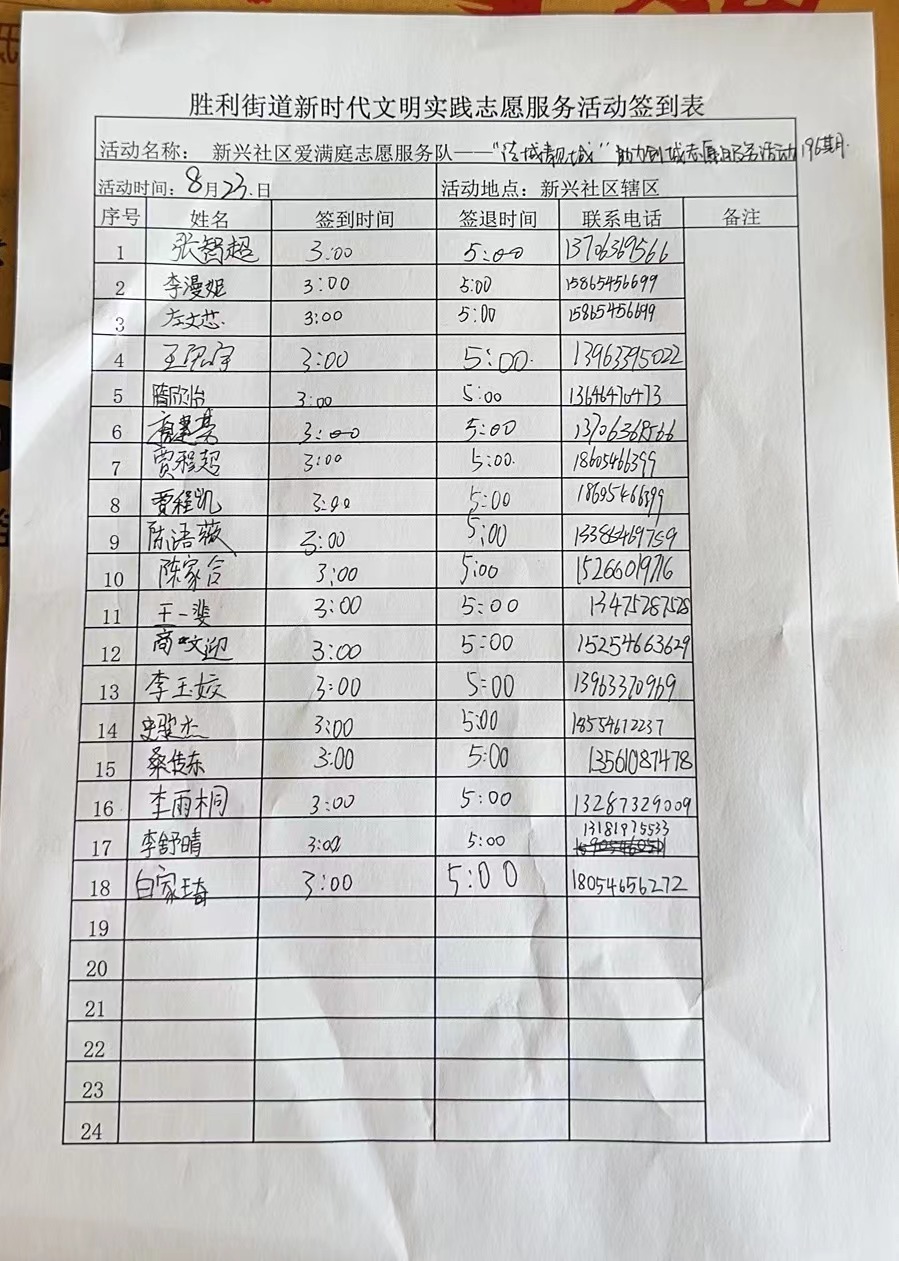 胜利街道新时代文明实践志愿服务活动签到表
活动名称: 新兴社区爱满庭志愿服务队——“洁城靓城”助力创城志愿服务活动196期
活动时间:8月23日 活动地点:新兴社区辖区
序号 姓名 签到时间 签退时间 联系电话 备注
1 张智超 3:00 5:00 13706369566
2 李漫妮 3:00 5:00 15865456699
3 左文芯 3:00 5:00 15865456699
4 王宇 3:00 5:00 13963395022
5 隋欣怡 3:00 5:00 13646470473
6 3:00 5:00
7 贾程超 3:00 5:00 18605466399
8 贾程凯 3:00 5:00 18605466399
9 陈语薇 3:00 5:00
10 陈家合 3:00 5:00 15266019716
11 王一斐 3:00 5:00 13475287528
12 商文迎 3:00 5:00 15254663629
13 李玉姣 3:00 5:00 13963370969
14 史骏杰 3:00 5:00 18554612237
15 桑传东 3:00 5:00 13561087478
16 李雨桐 3:00 5:00 13287329009
17 李舒晴 3:00 5:00 13181975533
18 白家琦 3:00 5:00 18054656272
19
20
21
22
23
24